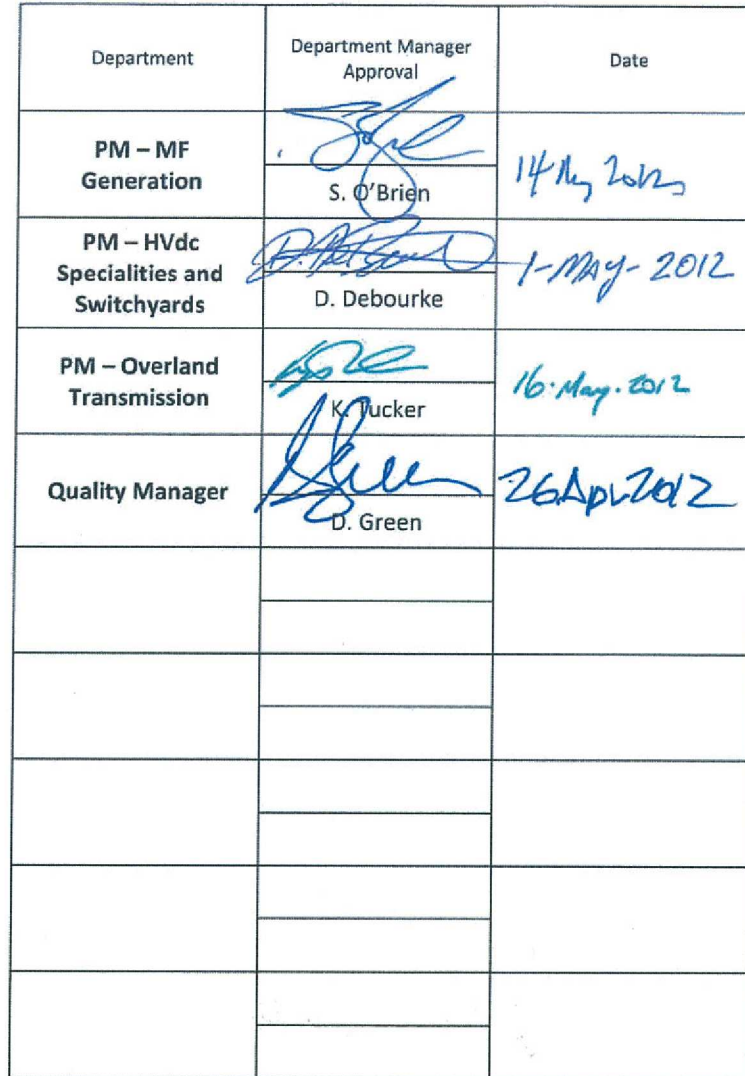 Department
Department Manager
Approval
Date
PM – MF
Generation
S. O'Brien
14 My 2012
PM – HVdc
Specialities and
Switchyards
D. Debourke
1-MAY-2012
PM – Overland
Transmission
K. Tucker
16·May·2012
Quality Manager
D. Green
26 Apr 2012